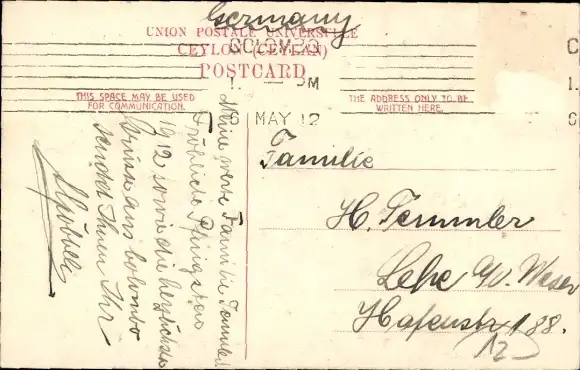 Germany
UNION POSTALE UNIVERSELLE
CEYLON (CEYLAN)
POSTCARD
COLOMBO
1. - PM
8 MAY 12
THIS SPACE MAY BE USED
FOR COMMUNICATION.
THE ADDRESS ONLY TO BE
WRITTEN HERE.
Meine werte Familie Temmler
Fröhliche Pfingsten
1912 sowie die herzlichsten
Grüsse aus Colombo
sendet Ihnen Ihr
Familie
H. Temmler
Lehe a/d. Weser
Hafenstr. 188.